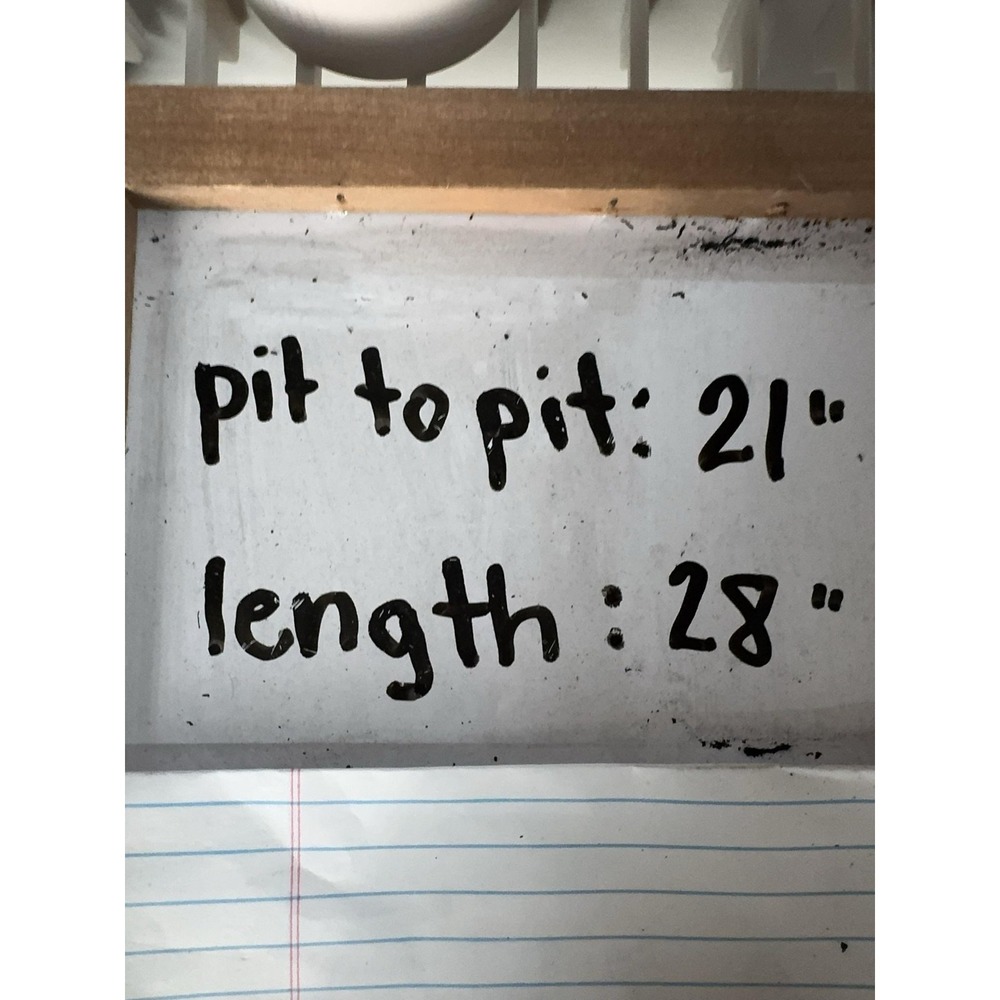 pit to pit: 21"
length: 28"